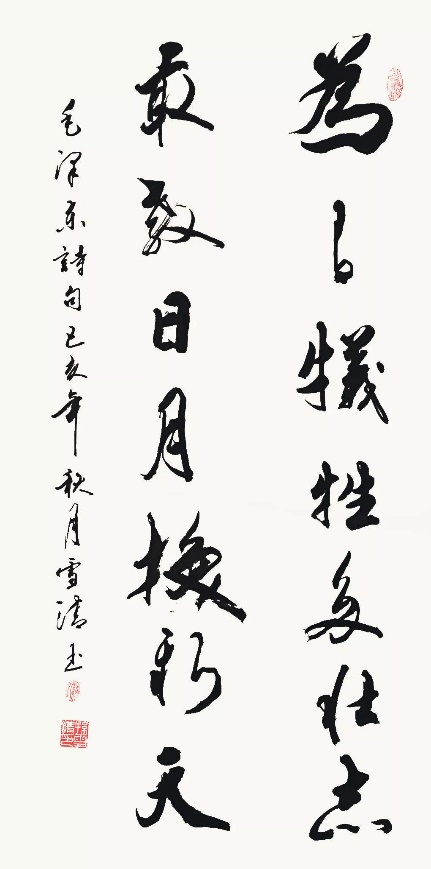 為有犠牲多壮志
敢教日月換新天
毛澤东詩句己亥年秋月雪清书